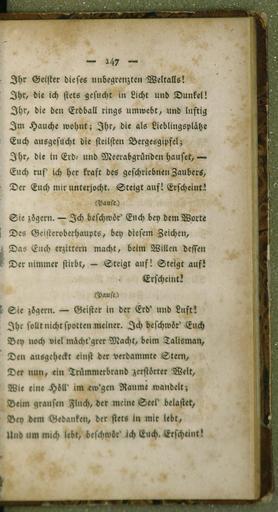 — 247 —
Ihr Geister dieses unbegrenzten Weltalls!
Ihr, die ich stets gesucht in Licht und Dunkel!
Ihr, die den Erdball rings umwebt, und luftig
Im Hauche wohnt; Ihr, die als Lieblingsplätze
Euch ausgesucht die steilsten Bergesgipfel;
Ihr, die in Erd= und Meerabgründen hauset, —
Euch ruf' ich her kraft des geschriebnen Zaubers,
Der Euch mir unterjocht. Steigt auf! Erscheint!
(Pause.)
Sie zögern. — Ich beschwör' Euch bey dem Worte
Des Geisteroberhaupts, bey diesem Zeichen,
Das Euch erzittern macht, beim Willen dessen
Der nimmer stirbt, — Steigt auf! Steigt auf!
Erscheint!
(Pause.)
Sie zögern. — Geister in der Erd' und Luft!
Ihr sollt nicht spotten meiner. Ich beschwör' Euch
Bey noch viel mächt'grer Macht, beim Talisman,
Den ausgeheckt einst der verdammte Stern,
Der nun, ein Trümmerbrand zerstörter Welt,
Wie eine Höll' im ew'gen Raume wandelt;
Beim grausen Fluch, der meine Seel' belastet,
Bey dem Gedanken, der stets in mir lebt,
Und um mich lebt, beschwör' ich Euch. Erscheint!